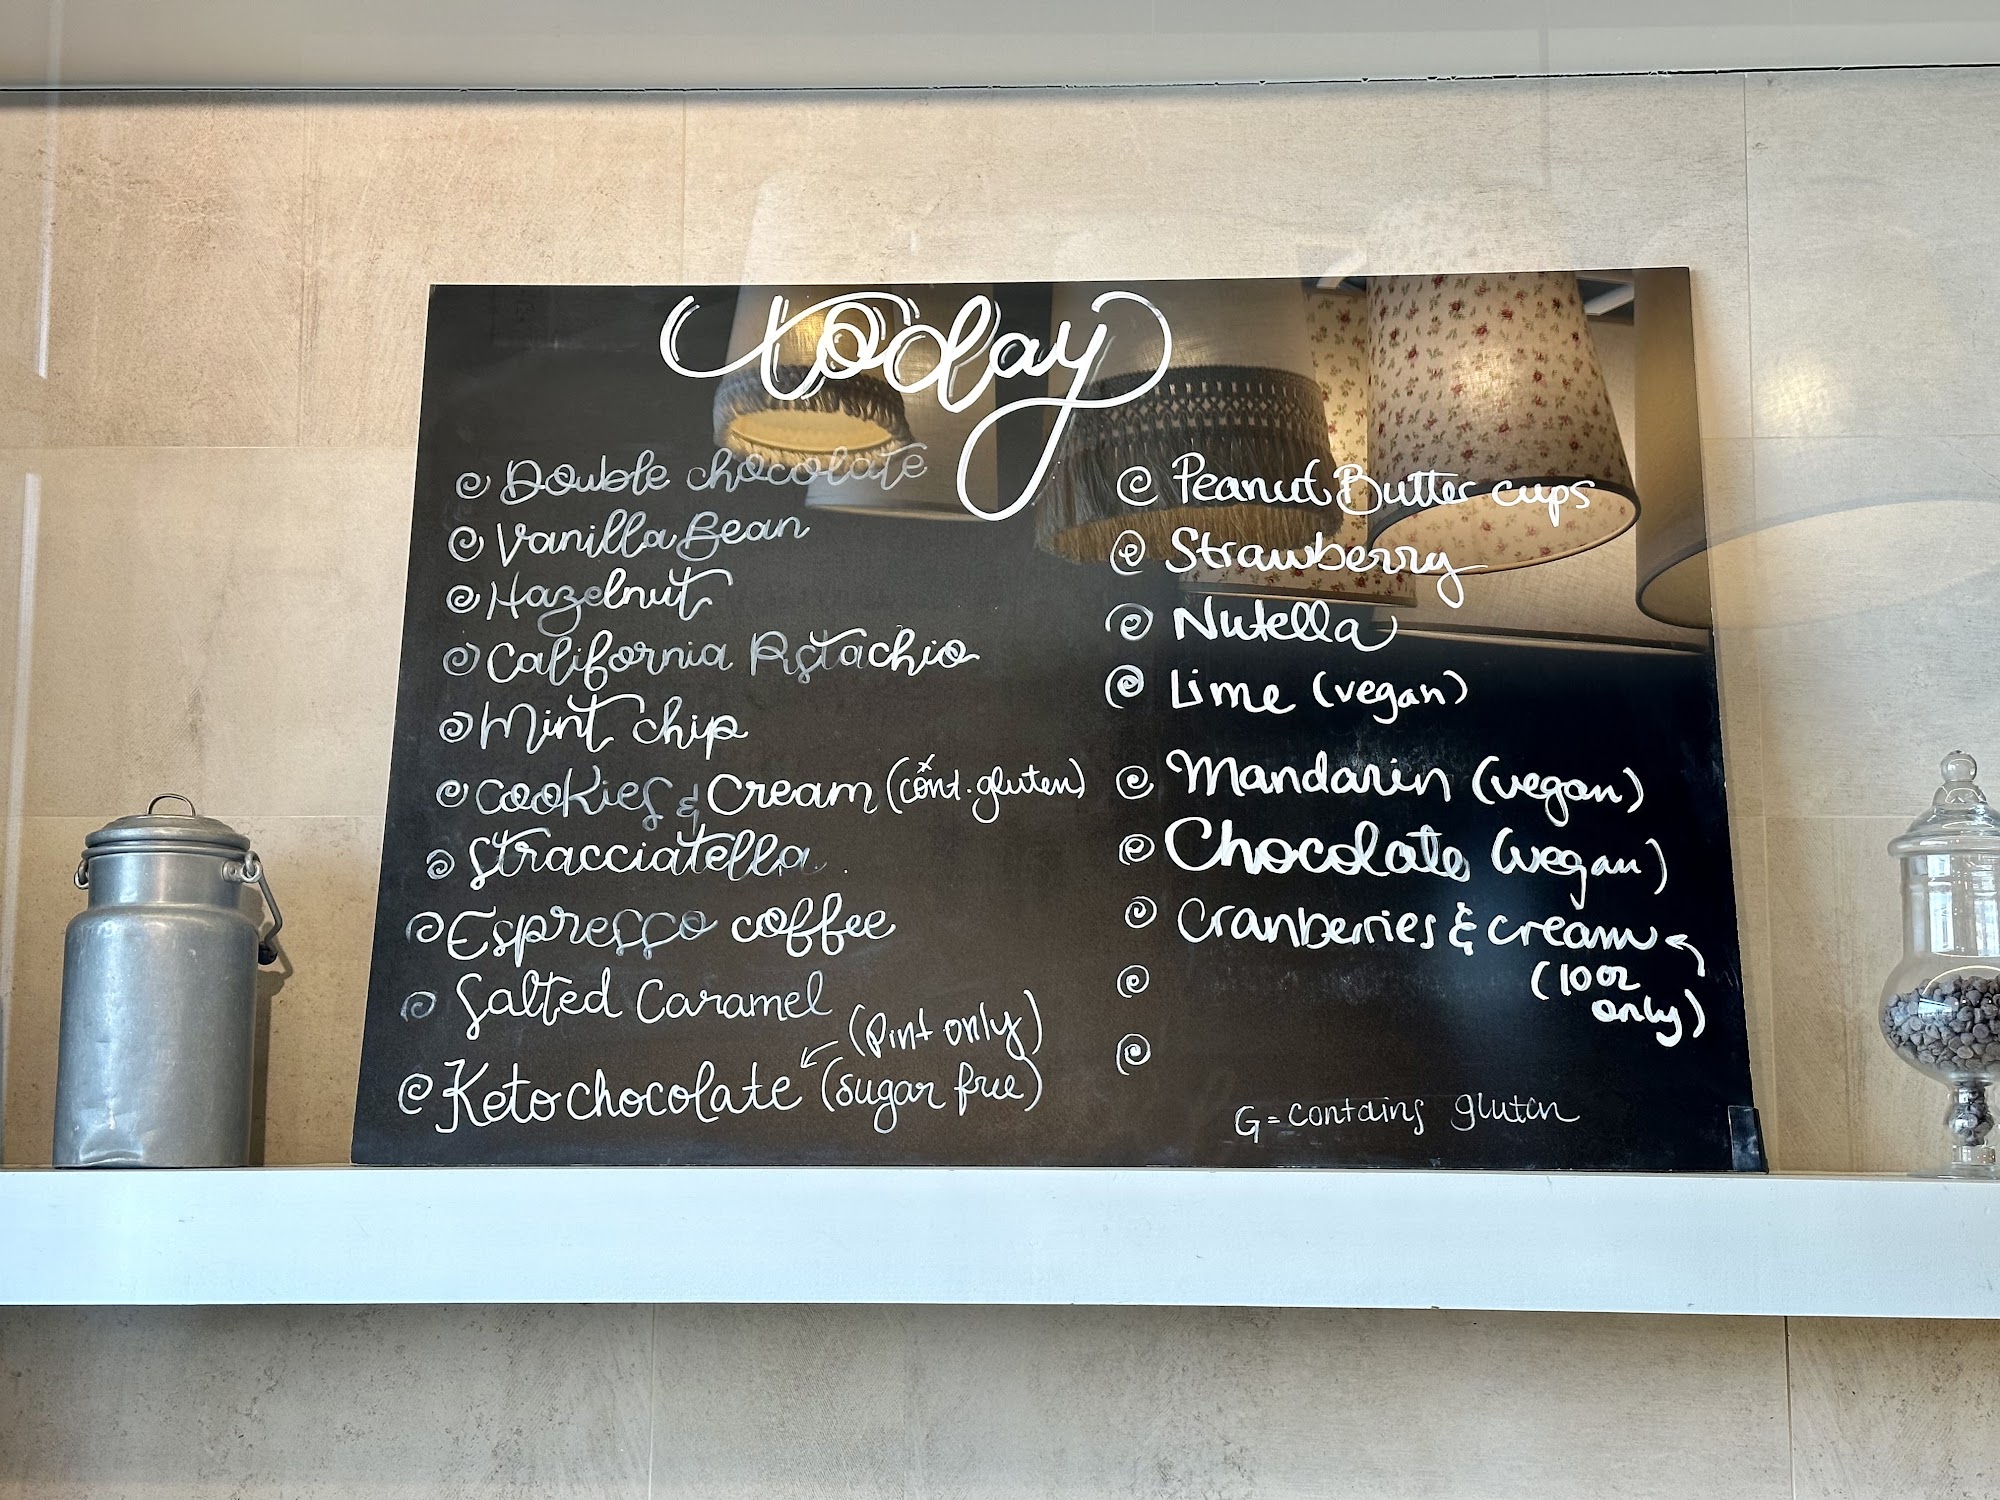 today
Double chocolate
Vanilla Bean
Hazelnut
California Pistachio
Mint chip
Cookies & Cream (cont. gluten)
Stracciatella
Espresso coffee
Salted Caramel
(Pint only)
Keto chocolate (sugar free)
Peanut Butter cups
Strawberry
Nutella
Lime (vegan)
Mandarin (vegan)
Chocolate (vegan)
Cranberries & cream
(10oz
only)
G = contains gluten